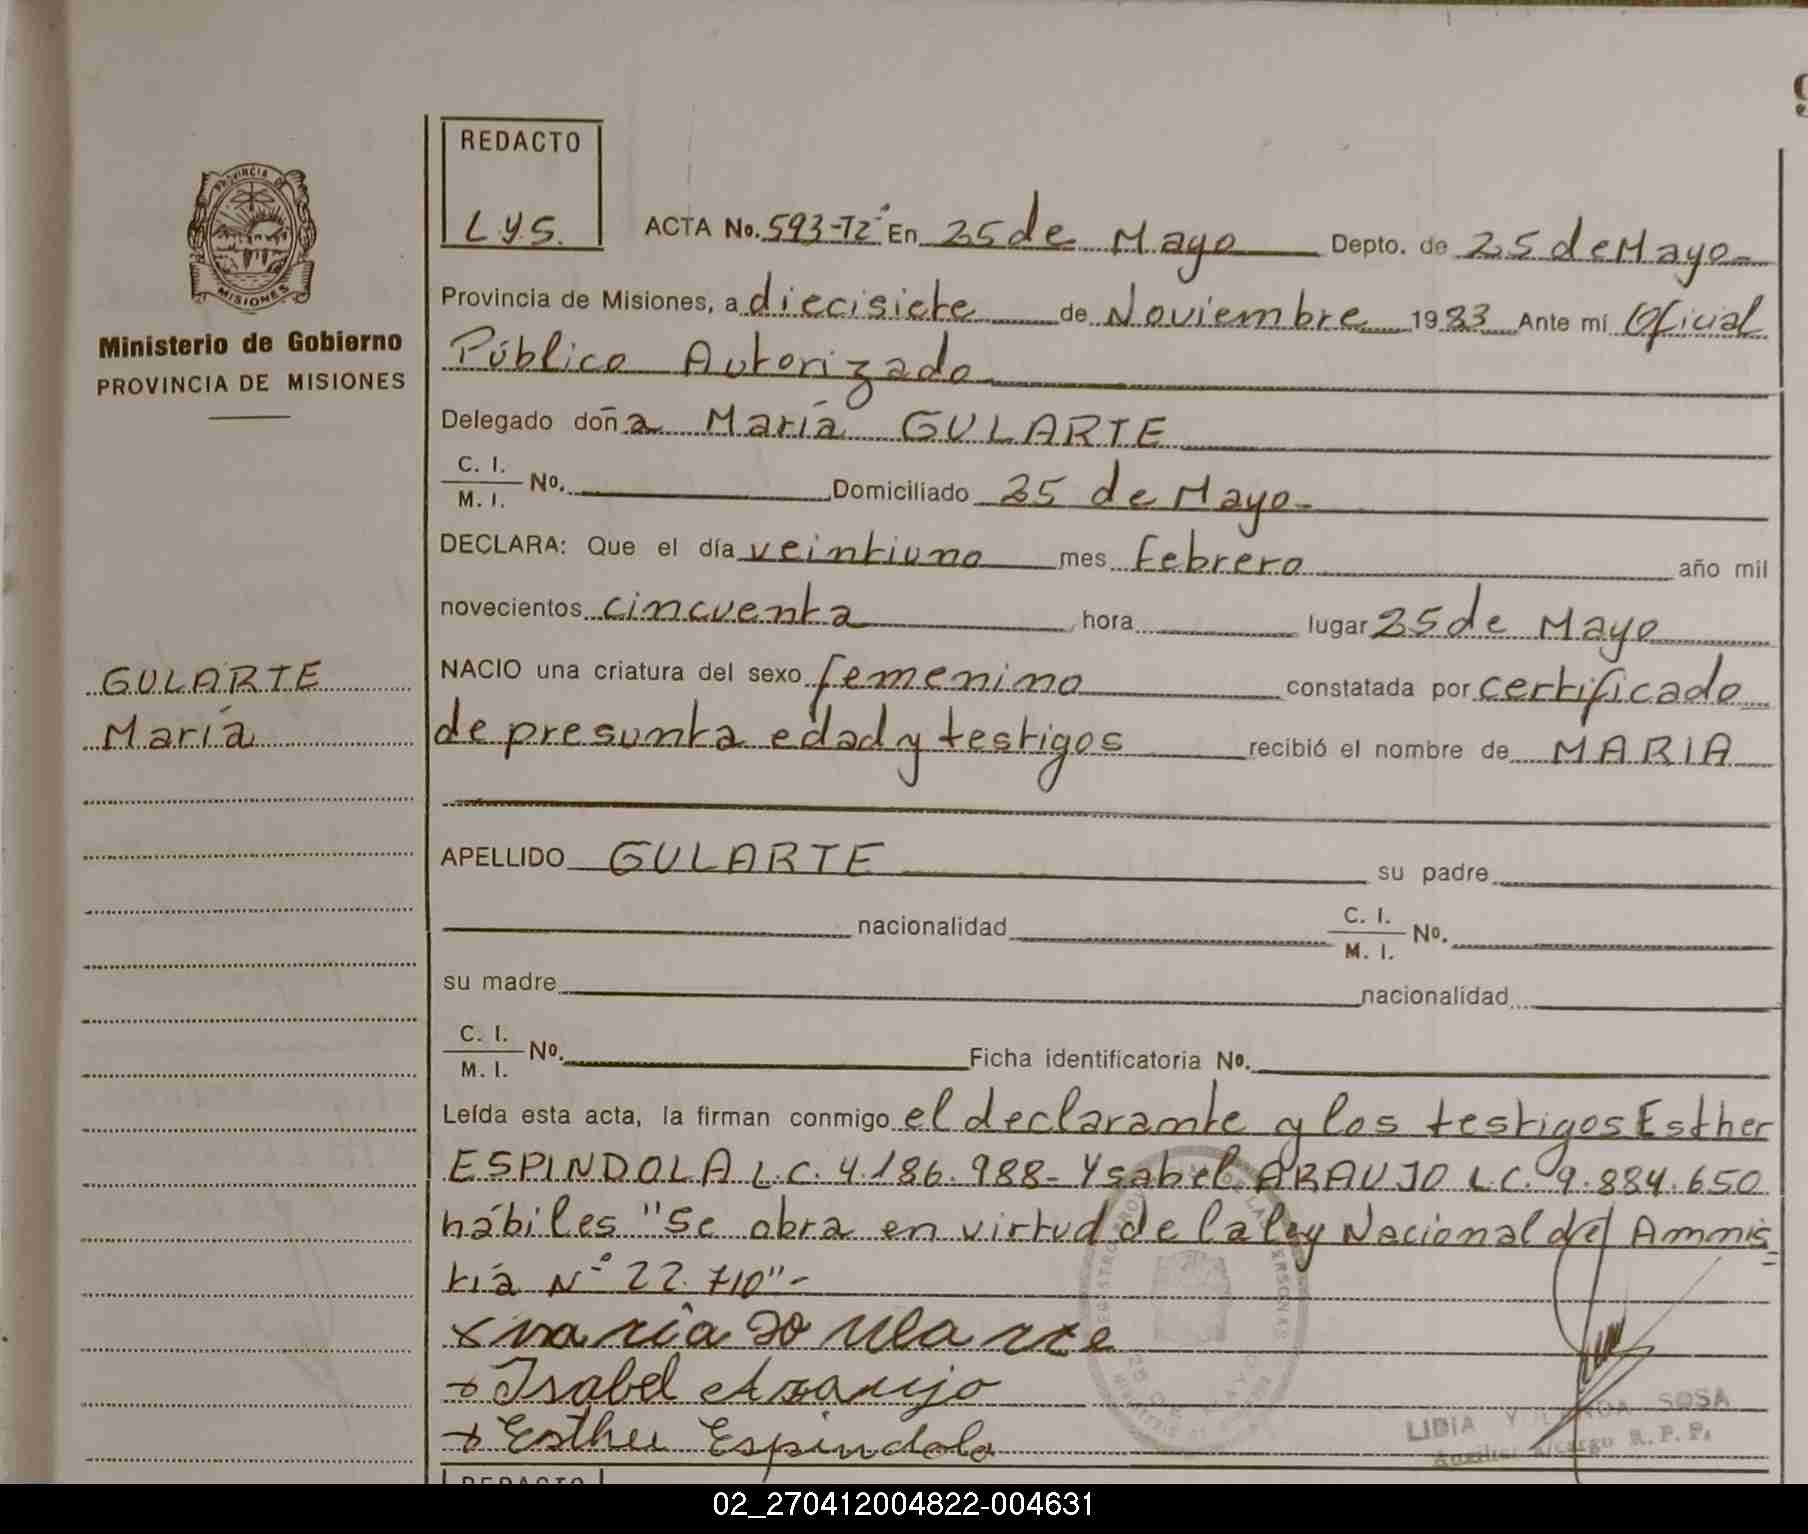 9
REDACTO
L.Y.S.
ACTA No. 593-Tº2º En 25 de Mayo Depto. de 25 de Mayo-
PROVINCIA DE
MISIONES
Provincia de Misiones, a diecisiete de Noviembre 1983 Ante mí Oficial
Ministerio de Gobierno
PROVINCIA DE MISIONES
Público Autorizado
Delegado doña María GULARTE
C. I.
M. I. No. Domiciliado 25 de Mayo-
DECLARA: Que el día veintiuno mes Febrero año mil
novecientos cincuenta hora lugar 25 de Mayo
GULARTE
María
NACIO una criatura del sexo femenino constatada por certificado
de presunta edad y testigos recibió el nombre de MARIA
APELLIDO GULARTE su padre
nacionalidad C. I.
M. I. No.
su madre nacionalidad
C. I.
M. I. No. Ficha identificatoria No.
Leída esta acta, la firman conmigo el declarante y los testigos Esther
ESPINDOLA L.C. 4.186.988- Ysabel ARAUJO L.C. 9.884.650
hábiles "Se obra en virtud de la ley Nacional de Amnis
tía Nº 22.710"-
x maria go ularte
x Isabel Araujo
x Esther Espindola
LIDIA YOLANDA SOSA
Auxiliar a/cargo R. P. P.
REDACTO
02_270412004822-004631